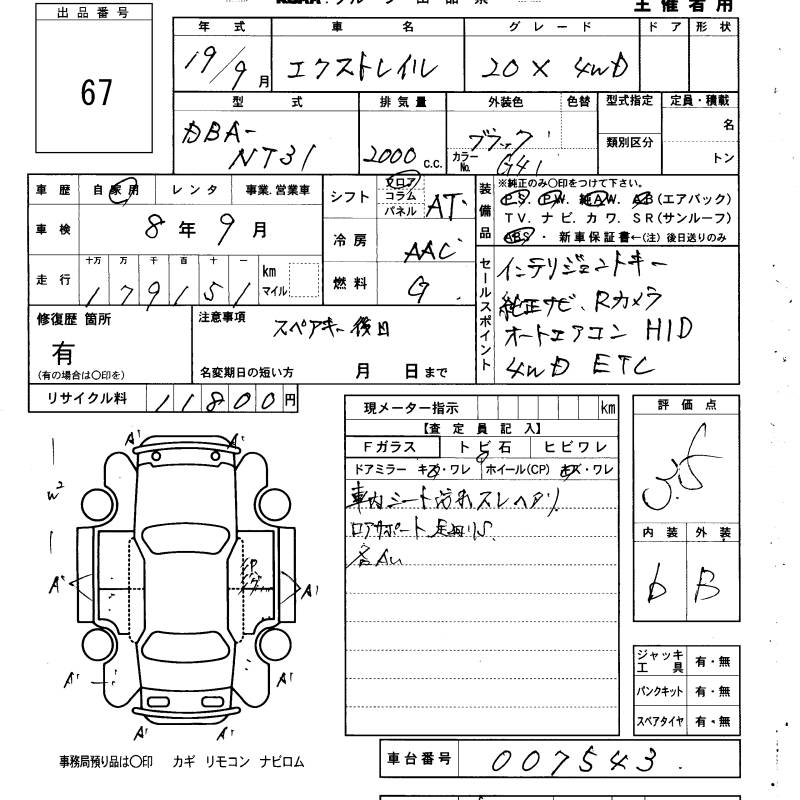 主催者用
出品番号
67
年式 車名 グレード ドア 形状
19/9月 エクストレイル 20X 4WD
型式 排気量 外装色 色替 型式指定 定員・積載
DBA-
NT31
2000 c.c.
ブラック
カラーNo. G41
類別区分
名
トン
車歴 自家用 レンタ 事業.営業車
車検 8年9月
走行 十万 万 千 百 十 一
179151 km マイル
シフト フロア コラム パネル AT
冷房 AAC
燃料 G
装備品
※純正のみ○印をつけて下さい。
P.S. P.W. 純A.W. AB(エアバック)
T V. ナ ビ. カ ワ. S R(サンルーフ)
ABS ・ 新車保証書←(注) 後日送りのみ
セールスポイント
インテリジェントキー
純正ナビ、Rカメラ
オートエアコン HID
4WD ETC
修復歴 箇所
有
(有の場合は○印を)
注意事項 スペアキー後日
名変期日の短い方 月 日まで
リサイクル料 11800円
現メーター指示 km
【査定員記入】
Fガラス トビ石 ヒビワレ
ドアミラー キズ・ワレ ホイール(CP) キズ・ワレ
車内シート汚れスレヘタリ
ロアサポート
各AU
評価点
3.5
内装 外装
D B
ジャッキ 工具 有・無
パンクキット 有・無
スペアタイヤ 有・無
A' A'
W2
A' A'
A' A'
A' A'
事務局預り品は○印 カギ リモコン ナビロム
車台番号 007543